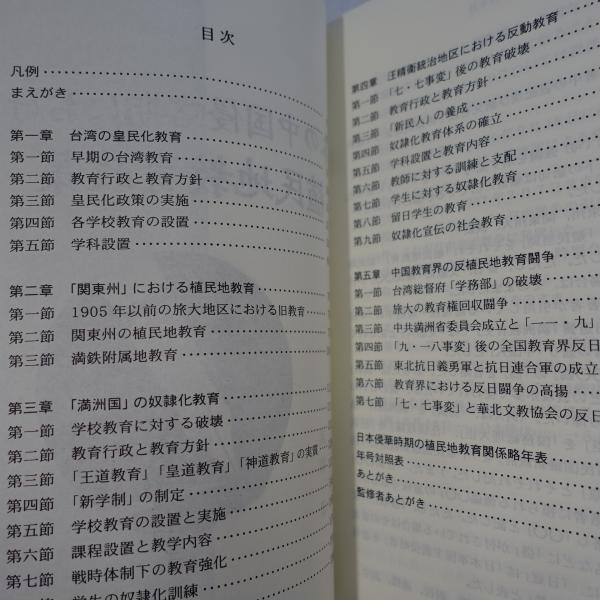 目次
凡例
まえがき
第一章 台湾の皇民化教育
第一節 早期の台湾教育
第二節 教育行政と教育方針
第三節 皇民化政策の実施
第四節 各学校教育の設置
第五節 学科設置
第二章 「関東州」における植民地教育
第一節 1905年以前の旅大地区における旧教育
第二節 関東州の植民地教育
第三節 満鉄附属地教育
第三章 「満洲国」の奴隷化教育
第一節 学校教育に対する破壊
第二節 教育行政と教育方針
第三節 「王道教育」「皇道教育」「神道教育」の実質
第四節 「新学制」の制定
第五節 学校教育の設置と実施
第六節 課程設置と教学内容
第七節 戦時体制下の教育強化
学生の奴隷化訓練
第四章 汪精衛統治地区における反動教育
第一節 「七・七事変」後の教育破壊
第二節 教育行政と教育方針
第三節 「新民人」の養成
第四節 奴隷化教育体系の確立
第五節 学科設置と教育内容
第六節 教師に対する訓練と支配
第七節 学生に対する奴隷化教育
第八節 留日学生の教育
第九節 奴隷化宣伝の社会教育
第五章 中国教育界の反植民地教育闘争
第一節 台湾総督府「学務部」の破壊
第二節 旅大の教育権回収闘争
第三節 中共満洲省委員会成立と「一一・九」
第四節 「九・一八事変」後の全国教育界反日
第五節 東北抗日義勇軍と抗日連合軍の成立
第六節 教育界における反日闘争の高揚
第七節 「七・七事変」と華北文教協会の反日
日本侵華時期の植民地教育関係略年表
年号対照表
あとがき
監修者あとがき